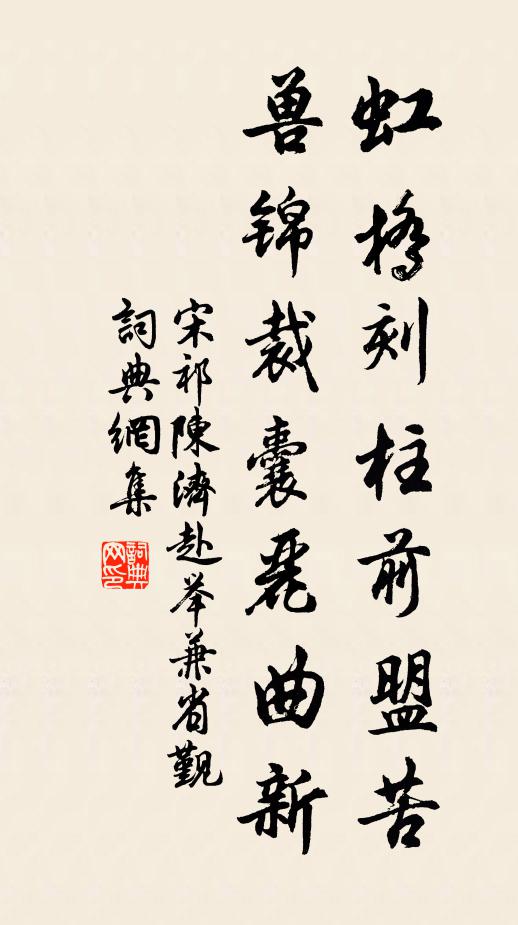 虹桥刻柱前盟苦
兽锦裁囊丽曲新
宋祁陳濟赴举兼省觐
詞典網集
詞典网印